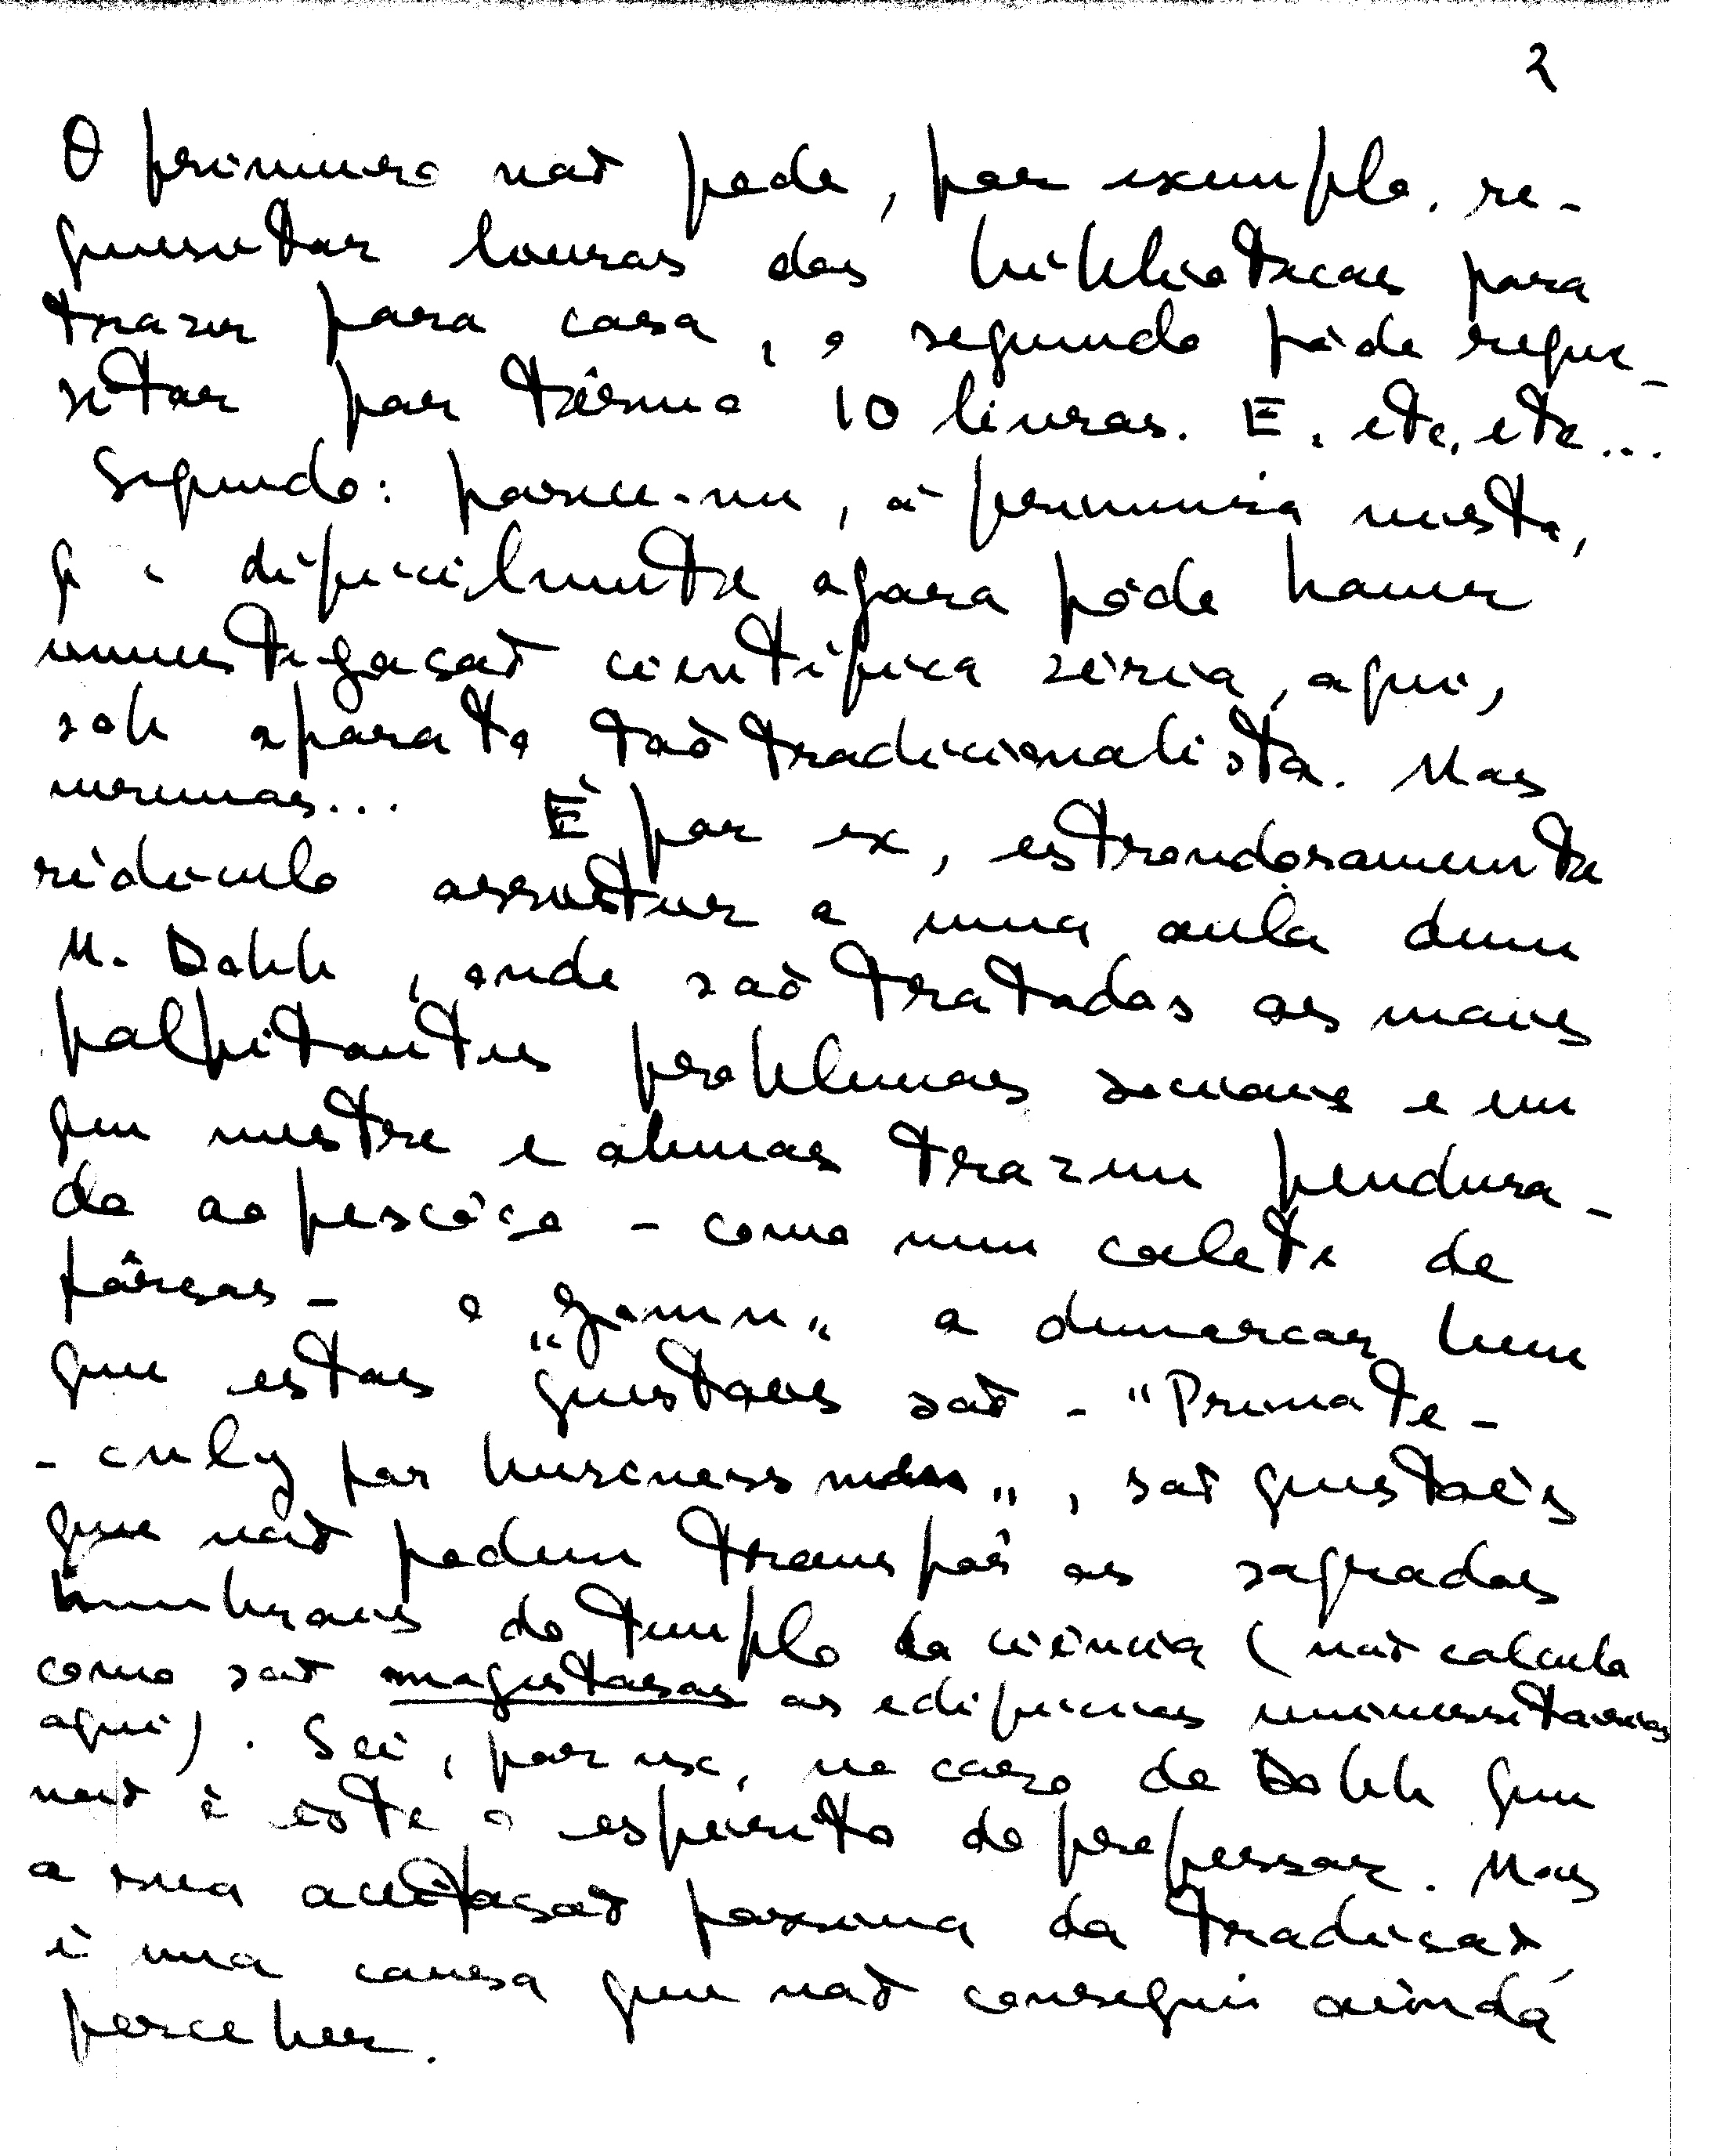 2
O primeiro não pode, por exemplo, re-
quisitar livros das bibliotecas para
trazer para casa, o segundo póde requi-
sitar por têrmo 10 livros. E, etc, etc...
Segundo: parece-me, á primeira vista,
q. dificilmente agora póde haver
investigação cientifica séria, aqui,
sob aparato tão tradicionalista. Mas
veremos... É por ex, estrondosamente
ridiculo assistir a uma aula dum
M. Dobb, onde são tratados os mais
palpitantes problemas sociais e em
que mestre e alunos trazem pendura-
do ao pescôço - como num colete de
fôrças - o "gown" a demarcar bem
que estas questões são - "Private-
- only for business men", são questões
que não podem transpôr os sagrados
humbrais do templo da ciência (não calcula
como são magestosos os edificios universitarios
aqui). Sei, por ex, no caso de Dobb que
não é êste o espirito do professor. Mas
a sua aceitação passiva da tradição
é uma cousa que não consegui ainda
perceber.